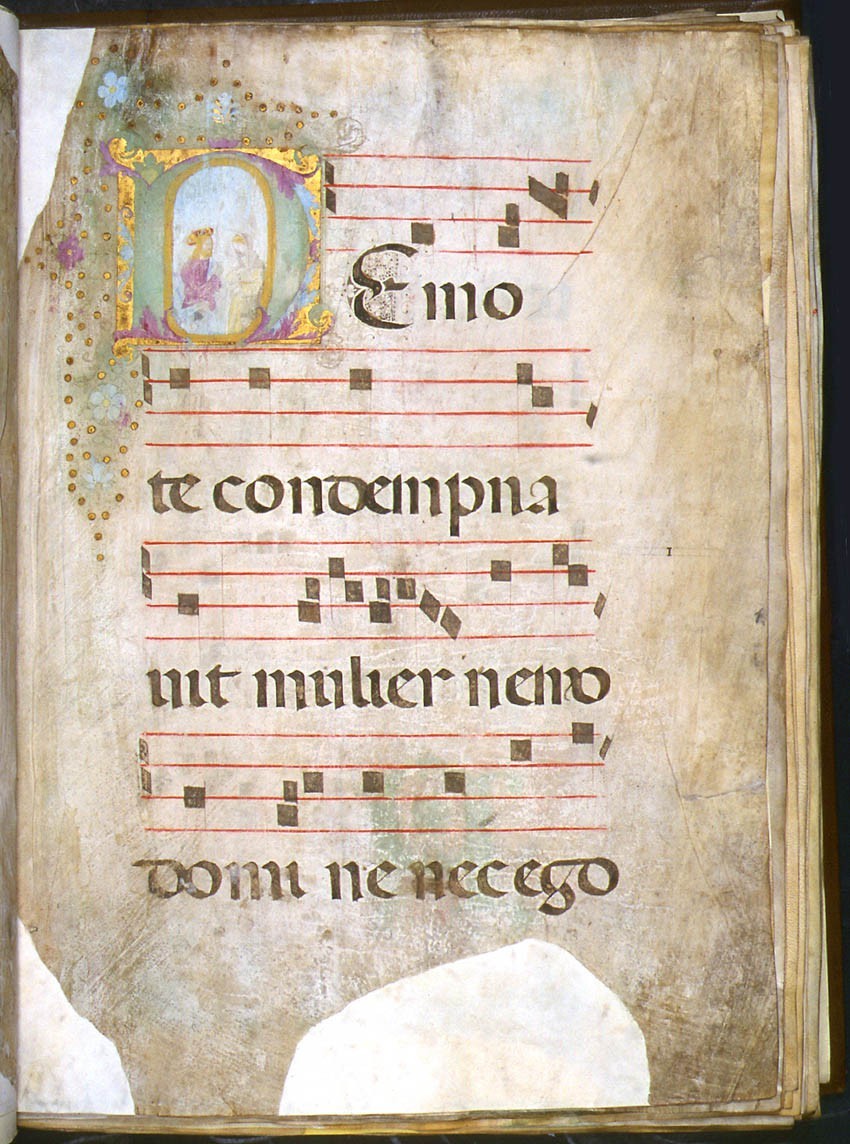 NEmo
te condempna
uit mulier nemo
I
domi ne nec ego